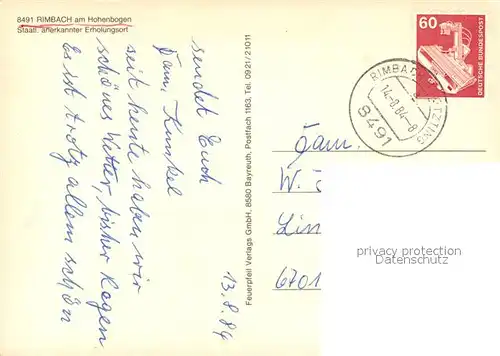 8491 RIMBACH am Hohenbogen
Staatl. anerkannter Erholungsort
Es ist trotz allem schön
schönes Wetter, bisher Regen
seit heute haben wir
Fam. Kunkel
sendet Euch
13.8.84
Feuerpfeil Verlags GmbH, 8580 Bayreuth, Postfach 1163, Tel. 0921/21011
60
DEUTSCHE BUNDESPOST
RIMBACH
14.-8.84-8
8491
Fam.
W.
Lim
6701
privacy protection
Datenschutz